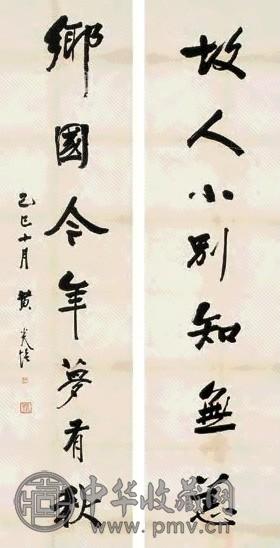 故人小别知無恙
鄉國今年夢有秋
己巳十月 黄
中华收藏网
www.pmv.cn